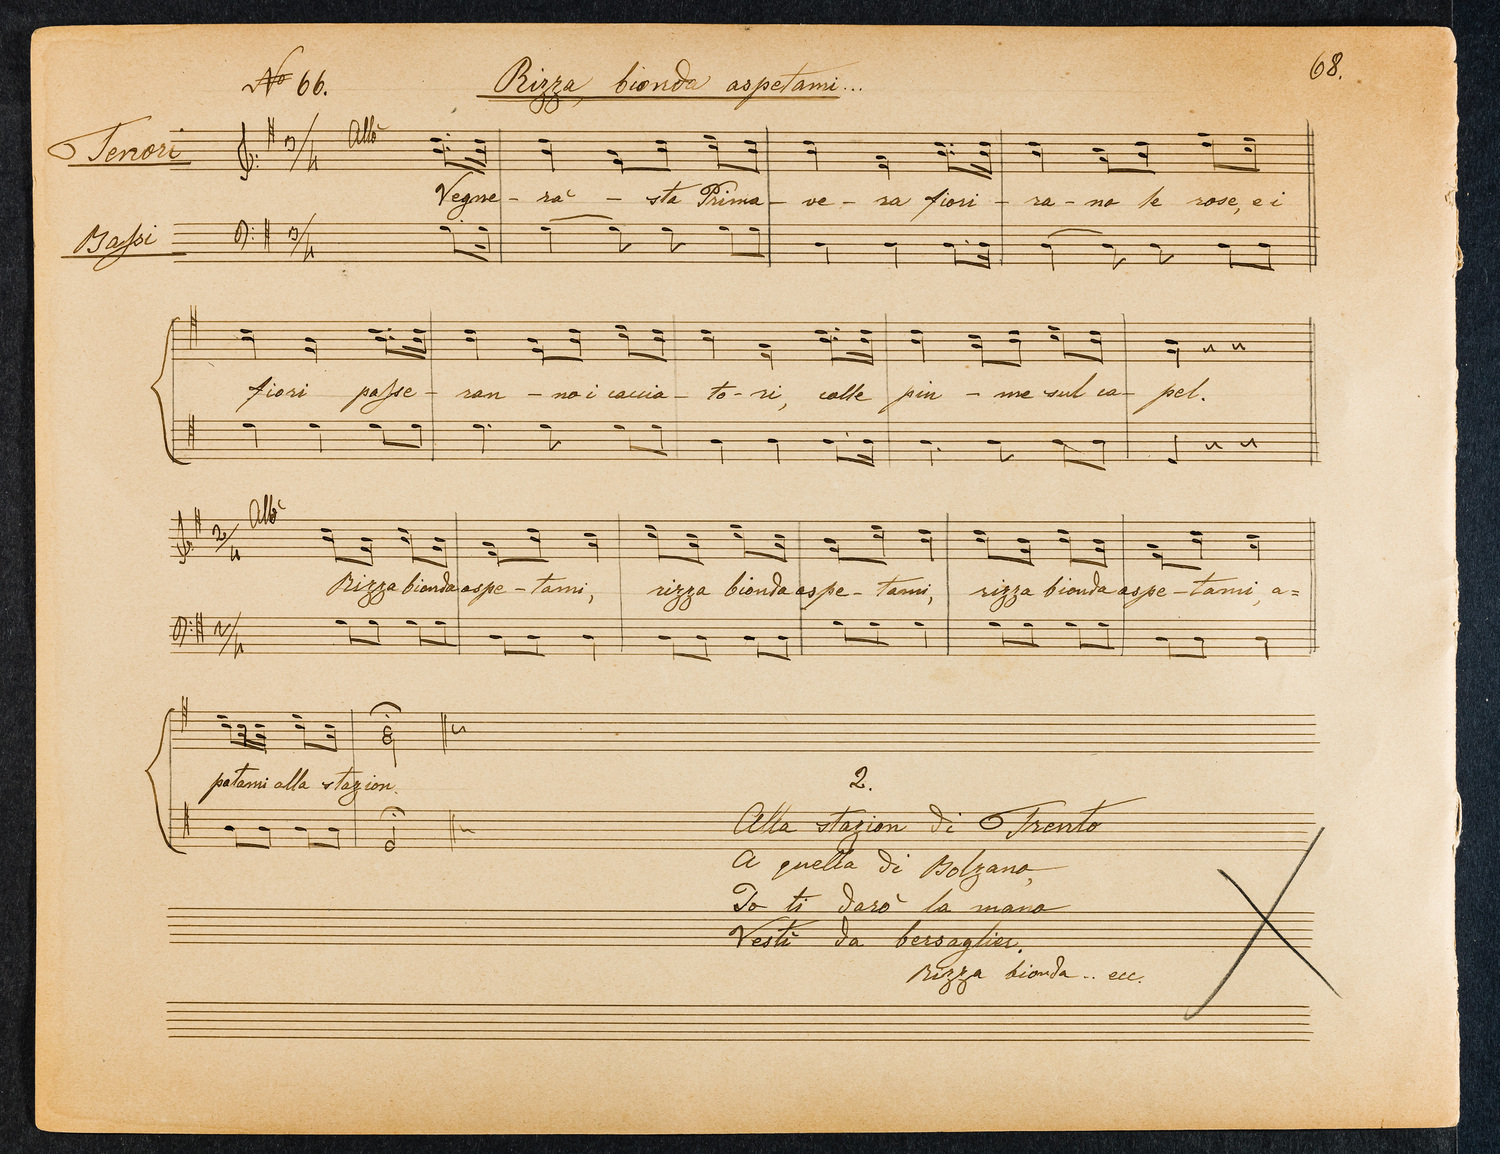 No 66. Rizza bionda aspetami... 68.
Tenori 3/4 Allo
Vegne - rà - sta Prima - ve - ra fiori - ra - no le rose, e i
Bassi 3/4
fiori passe - ran - no i caccia - to - ri, colle piu - me sul ca - pel.
2/4 Allo
Rizza bionda aspe - tami, rizza bionda aspe - tami, rizza bionda aspe - tami, a=
2/4
petami alla stazion.
2.
Alla stazion di Trento
A quella di Bolzano,
Io ti darò la mano
Vestì da bersaglier.
Rizza bionda .. ecc.